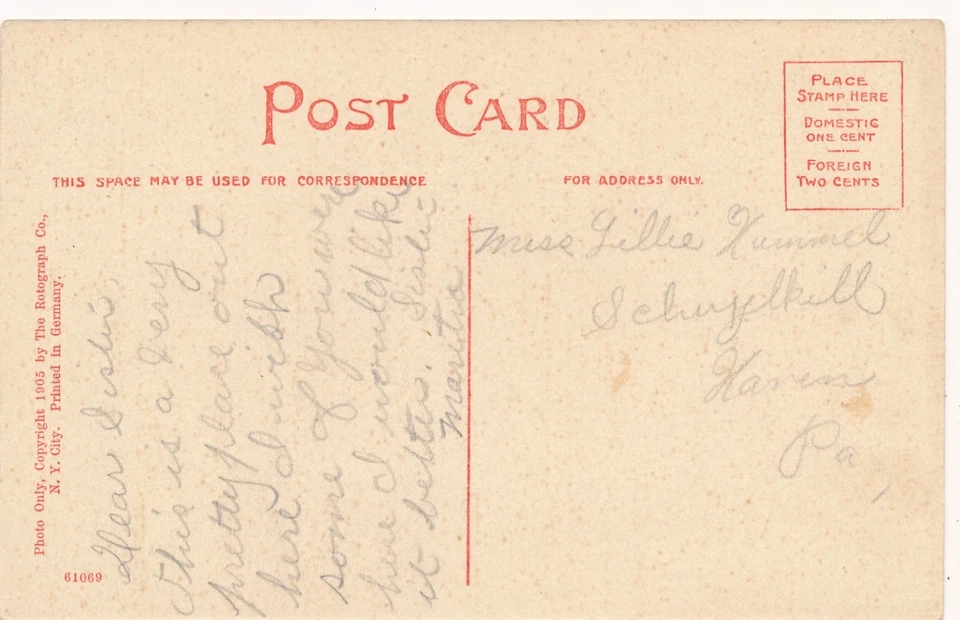 POST CARD
PLACE
STAMP HERE
DOMESTIC
ONE CENT
FOREIGN
TWO CENTS
THIS SPACE MAY BE USED FOR CORRESPONDENCE
FOR ADDRESS ONLY.
Photo Only, Copyright 1905 by The Rotograph Co.,
N. Y. City. Printed in Germany.
61069
Dear Sister,
This is a very
pretty place out
here I wish
some of you were
here I would like
it better. Sister
Martha
Miss Lillie Hummel
Schuylkill
Haven
Pa